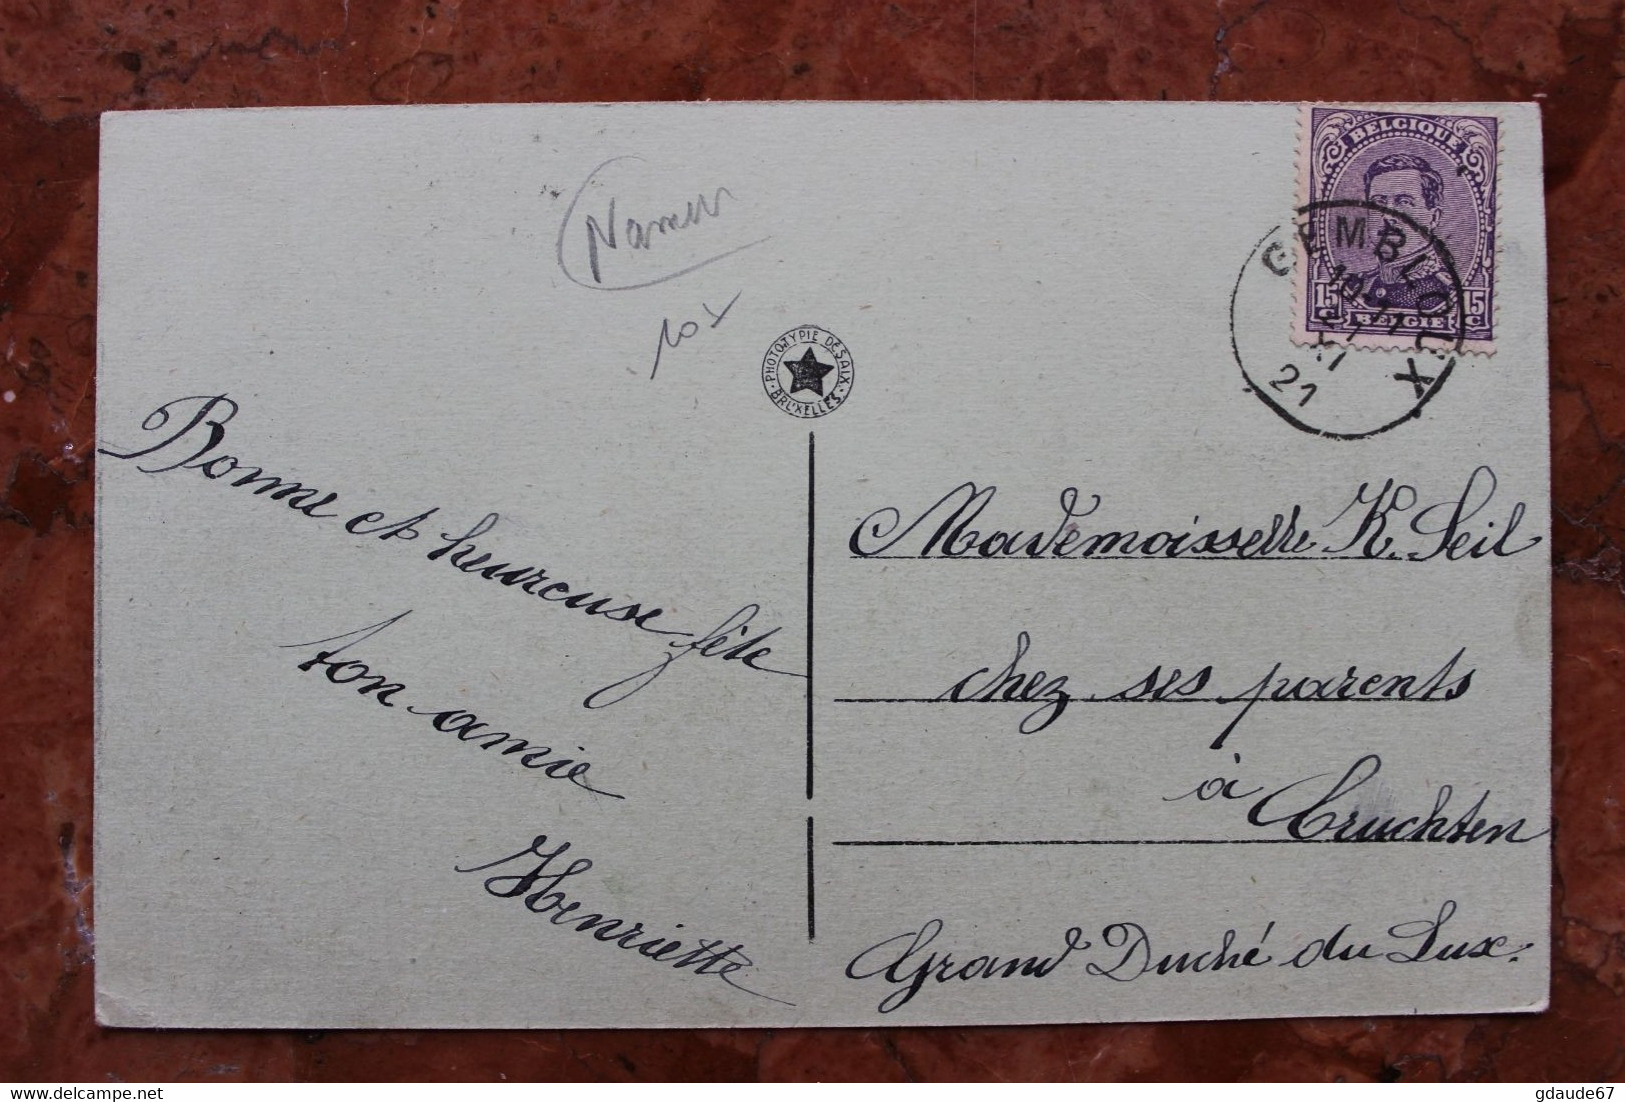 Namur
10x
PHOTOTYPIE DÉSAIX
BRUXELLES
BELGIQUE
15 C
BELGIË
15 C
GEMBLOUX
10-11
XI
21
Bonne et heureuse fête
ton amie
Henriette
Mademoisselle K. Seil
chez ses parents
à Cruchten
Grand Duché du Lux.
gdaude67